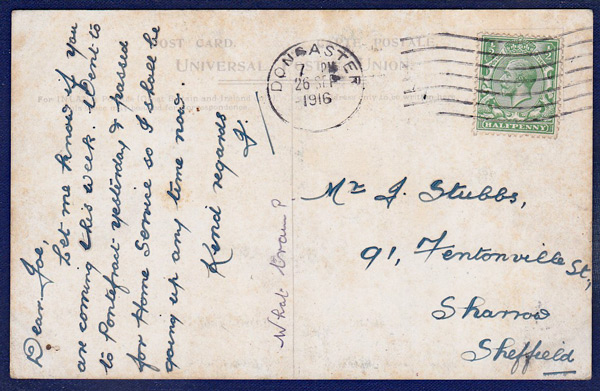 POST CARD. CARTE POSTALE.
UNIVERSAL POSTAL UNION.
DONCASTER
7 PM
26 SE
1916
HALFPENNY
Dear Joe,
Let me know if you
are coming this week. Went to
to Pontefract yesterday & passed
for Home Service so I shall be
going up any time now.
Kind regards
J.
What tram?
Mr J. Stubbs,
91, Fentonville St.,
Sharrow
Sheffield